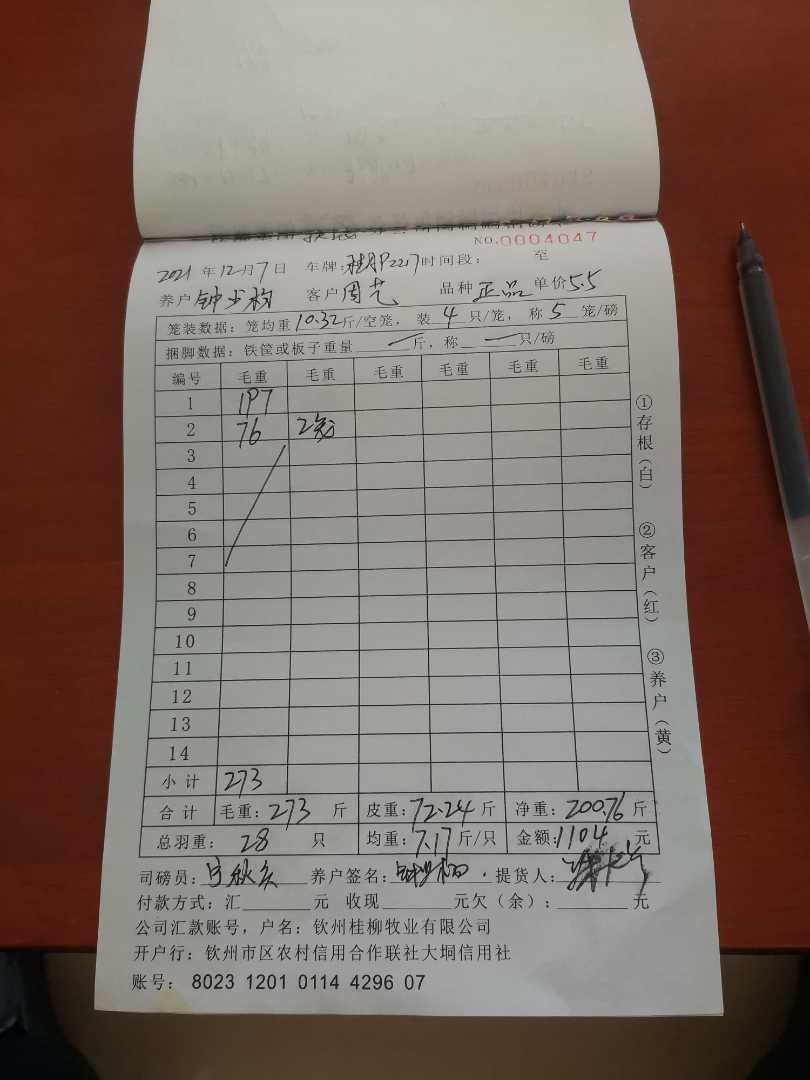 NO.0004047
2021年12月7日 车牌:桂P2217 时间段: 至
养户 钟 客户 周艺 品种 正品 单价 5.5
笼装数据:笼均重10.32斤/空笼,装4只/笼,称5笼/磅
捆脚数据:铁筐或板子重量一斤,称一只/磅
编号 毛重 毛重 毛重 毛重 毛重 毛重
1 197
2 76 2笼
3
4
5
6
7
8
9
10
11
12
13
14
小计 273
合计 毛重:273斤 皮重:72.24斤 净重:200.76斤
总羽重:28只 均重:7.17斤/只 金额:1104元
司磅员: 养户签名: 提货人:
付款方式:汇 元 收现 元欠(余): 元
公司汇款账号,户名:钦州桂柳牧业有限公司
开户行:钦州市区农村信用合作联社大垌信用社
账号: 8023 1201 0114 4296 07
①存根(白)
②客户(红)
③养户(黄)